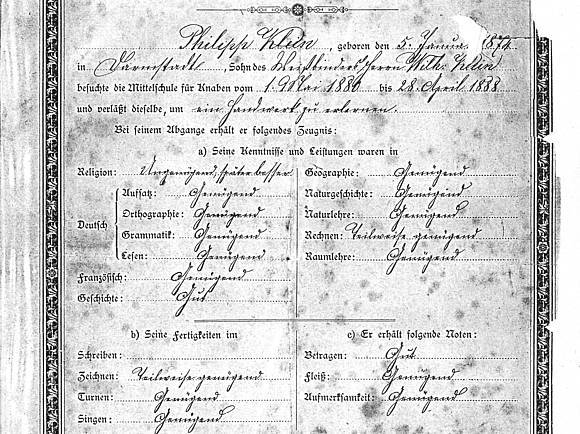 Philipp Klein, geboren den 5. Januar 1874
in Darmstadt, Sohn des Weißbinders Herrn Wilh. Klein
besuchte die Mittelschule für Knaben vom 1. Mai 1880 bis 28. April 1888
und verläßt dieselbe, um ein Handwerk zu erlernen.
Bei seinem Abgange erhält er folgendes Zeugnis:
a) Seine Kenntnisse und Leistungen waren in
Religion: Ungenügend, später besser
Deutsch
Aufsatz: Genügend
Orthographie: Genügend
Grammatik: Genügend
Lesen: Genügend
Französisch: Genügend
Geschichte: Gut
Geographie: Genügend
Naturgeschichte: Genügend
Naturlehre: Genügend
Rechnen: Teilweise genügend
Raumlehre: Genügend
b) Seine Fertigkeiten im
Schreiben:
Zeichnen: Teilweise genügend
Turnen: Genügend
Singen: Genügend
c) Er erhält folgende Noten:
Betragen: Gut
Fleiß: Genügend
Aufmerksamkeit: Genügend